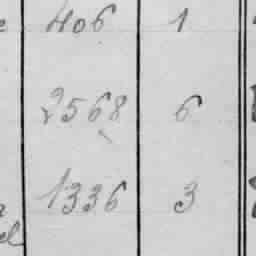 406 1
2568 6
1336 3